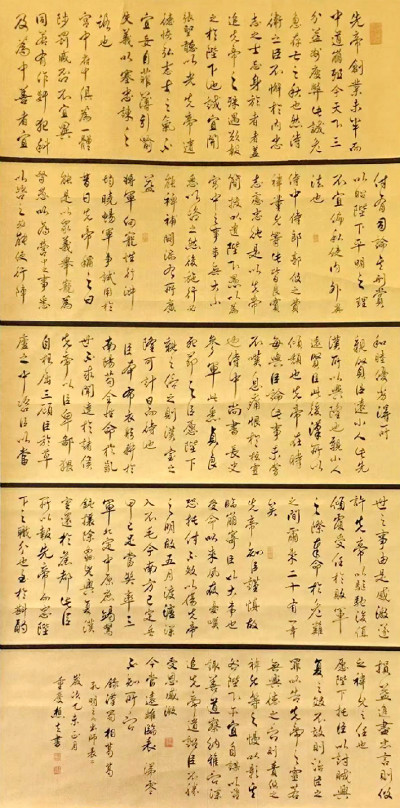 先帝創業未半而
中道崩殂今天下三
分益州疲弊此誠危
急存亡之秋也然侍
衛之臣不懈於內忠
志之士忘身於外者蓋
追先帝之殊遇欲報
之於陛下也誠宜開
張聖聽以光先帝遺
德恢弘志士之氣不
宜妄自菲薄引喻
失義以塞忠諫之
路也
宮中府中俱為一體
陟罰臧否不宜異
同若有作奸犯科
及為忠善者宜
付有司論其刑賞
以昭陛下平明之理
不宜偏私使內外異
法也
侍中侍郎郭攸之費
禕董允等此皆良實
志慮忠純是以先帝
簡拔以遺陛下愚以為
宮中之事事無大小
悉以咨之然後施行必
能裨補闕漏有所廣
益
將軍向寵性行淑
均曉暢軍事試用於
昔日先帝稱之曰
能是以眾議舉寵為
督愚以為營中之事悉
以咨之必能使行陣
和睦優劣得所
親賢臣遠小人此先
漢所以興隆也親小人
遠賢臣此後漢所以
傾頹也先帝在時
每與臣論此事未嘗
不嘆息痛恨於桓靈
也侍中尚書長史
參軍此悉貞良
死節之臣願陛下
親之信之則漢室之
隆可計日而待也
臣本布衣躬耕於
南陽苟全性命於亂
世不求聞達於諸侯
先帝不以臣卑鄙猥
自枉屈三顧臣於草
廬之中咨臣以當
世之事由是感激遂
許先帝以驅馳後值
傾覆受任於敗軍
之際奉命於危難
之間爾來二十有一年
矣
先帝知臣謹慎故
臨崩寄臣以大事也
受命以來夙夜憂嘆
恐託付不效以傷先帝
之明故五月渡瀘深
入不毛今南方已定兵
甲已足當獎率三
軍北定中原庶竭駑
鈍攘除姦凶興復漢
室還於舊都此臣
所以報先帝而忠陛
下之職分也至於斟酌
損益進盡忠言則攸
之禕允之任也
願陛下託臣以討賊興
復之效不效則治臣之
罪以告先帝之靈若
無興德之言則責攸之
禕允等之慢以彰其
咎陛下亦宜自謀以咨
諏善道察納雅言深
追先帝遺詔臣不勝
受恩感激
今當遠離臨表涕零
不知所言
錄漢蜀相諸葛
孔明之出師表
歲次乙未正月
書